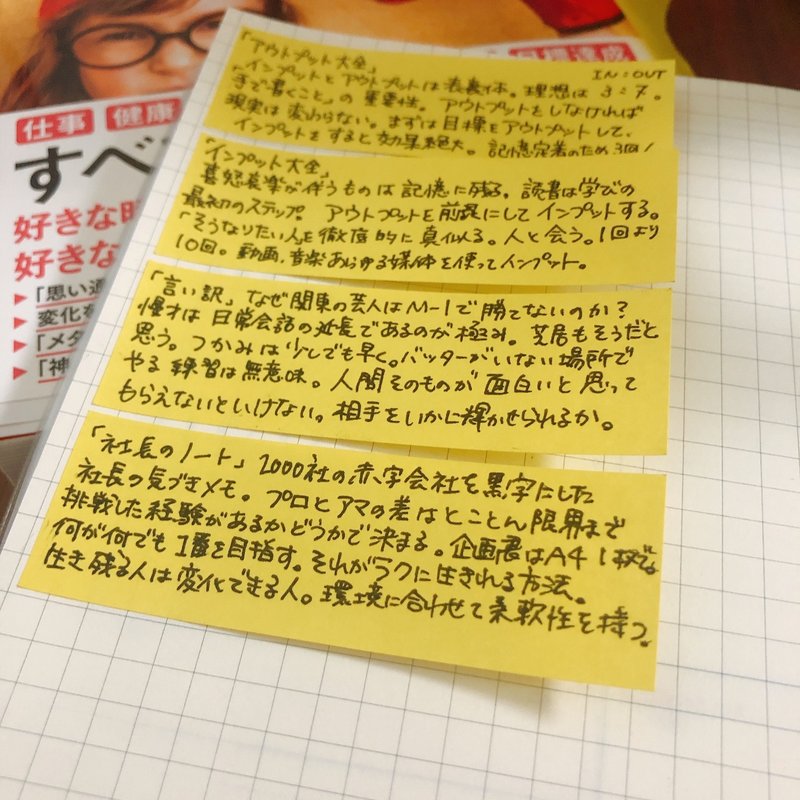 仕事 健康
すべ
好きな時
好きな
▶「思い通
▶変化を
▶「メタ
▶「神
目標達成
「アウトプット大全」
IN:OUT
インプットとアウトプットは表裏一体。理想は 3:7。
「手で書くこと」の重要性。アウトプットをしなければ
現実は変わらない。まずは目標をアウトプットして、
インプットをすると効果絶大。記憶定着のため3回/
「インプット大全」
喜怒哀楽が伴うものは記憶に残る。読書は学びの
最初のステップ。アウトプットを前提にしてインプットする。
「そうなりたい人を徹底的に真似る。人と会う。1回より
10回。動画、音楽あらゆる媒体を使ってインプット。
「言い訳」なぜ関東の芸人はM-1で勝てないのか?
漫才は日常会話の延長であるのが極み。芝居もそうだと
思う。つかみは少しでも早く。バッターがいない場所で
やる練習は無意味。人間そのものが面白いと思って
もらえないといけない。相手をいかに輝かせられるか。
「社長のノート」2000社の赤字会社を黒字にした
社長の気づきメモ。プロとアマの差はとことん限界まで
挑戦した経験があるかどうかで決まる。企画書はA4 1枚で。
何が何でも1番を目指す。それがラクに生きれる方法。
生き残る人は変化できる人。環境に合わせて柔軟性を持つ。